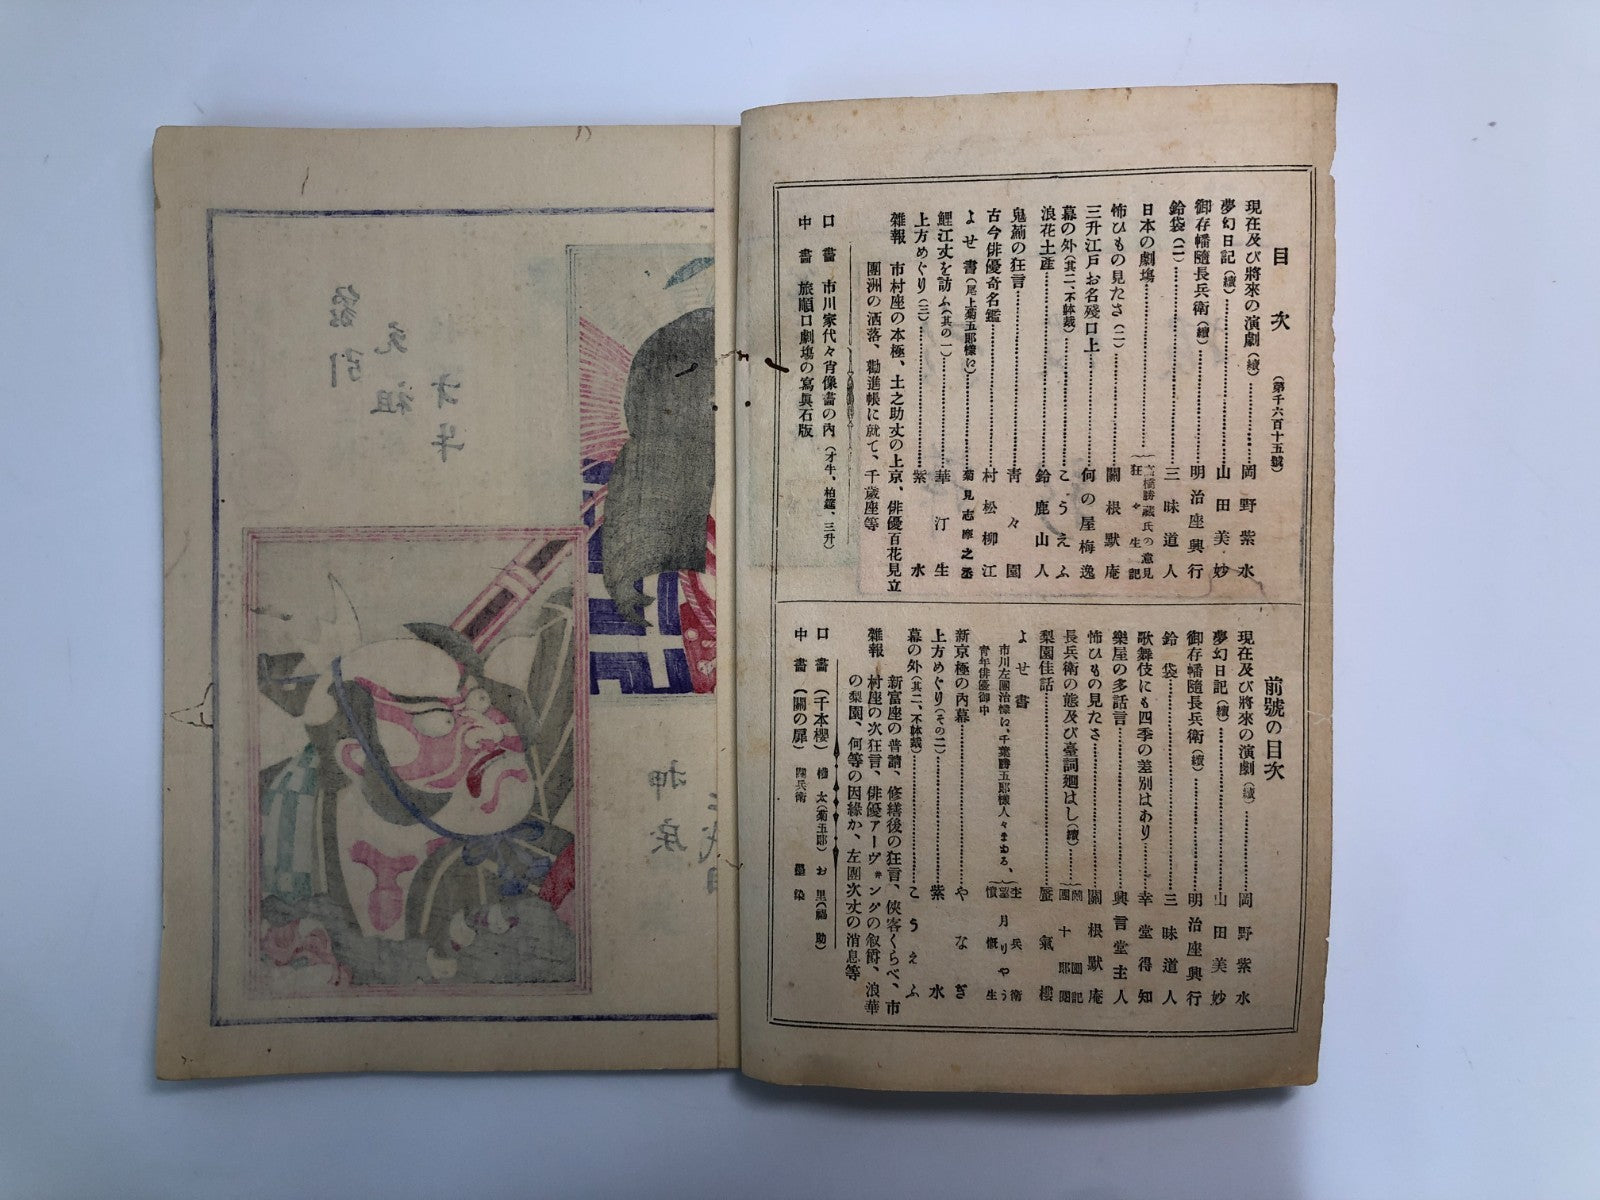 目次
(第千六百十五號)
現在及び將來の演劇(續)………岡野紫水
夢幻日記(續)………山田美妙
御存幡隨長兵衛(續)………明治座興行
鈴袋(二)………三昧道人
日本の劇塲………高橋勝藏氏の意見 狂々生記
怖ひもの見たさ(二)………關根默庵
三升江戸お名殘口上………何の屋梅逸
幕の外(其二、不躰裁)………こうえふ
浪花土產………鈴鹿山人
鬼薊の狂言………靑々園
古今俳優奇名鑑………村松柳江
よせ書(尾上菊五郎樣に)………菊見志摩之丞
鯉江丈を訪ふ(其の一)………華汀生
上方めぐり(三)………紫水
雜報 市村座の本極、土之助丈の上京、俳優百花見立
團洲の洒落、勸進帳に就て、千歲座等
口畵 市川家代々肖像畵の內(才牛、柏莚、三升)
中畵 旅順口劇塲の寫眞石版
前號の目次
現在及び將來の演劇(續)………岡野紫水
夢幻日記(續)………山田美妙
御存幡隨長兵衛(續)………明治座興行
鈴袋………三昧道人
歌舞伎にも四季の差別はあり………幸堂得知
樂屋の多話言………興言堂主人
怖ひもの見たさ………關根默庵
長兵衛の態及び臺詞廻はし(續)………團十郎閲
梨園佳話………蜃氣樓
よせ書
市川左團治樣に、千葉勝五郎樣人々まゐる、
靑年俳優御中
新京極の內幕………やなぎ
上方めぐり(その二)………紫水
幕の外(其二、不躰裁)………こうえふ
雜報 新富座の普請、修繕後の狂言、俠客くらべ、市
村座の次狂言、俳優アーヴ#ングの叙爵、浪華
の梨園、何等の因緣か、左團次丈の消息等
口畵(千本櫻) 權太(菊五郎)お里(福助)
中畵(關の扉) 關兵衛 墨染
元祖
才牛
象引